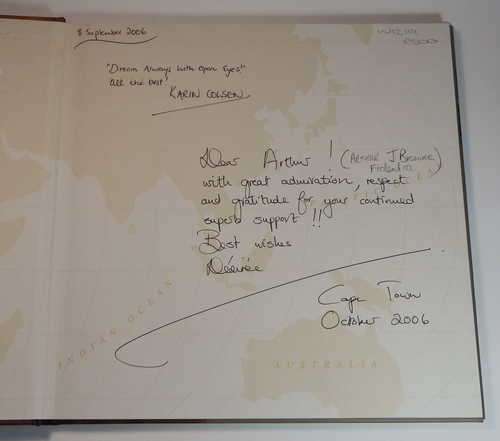 8 September 2006
"Dream Always with Open Eyes!"
All the best!
KARIN COLSEN
Dear Arthur! (Arthur J Browne
with great admiration, respect
and gratitude for your continued
superb support!!
Best wishes
Désirée
Cape Town
October 2006
INDIAN OCEAN
AUSTRALIA